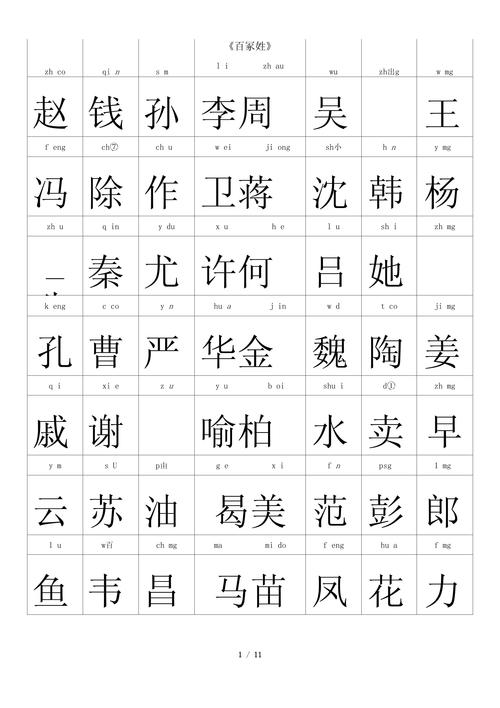 《百冢姓》
zh co qi n s m l i zh au wu zh出g w mg
赵 钱 孙 李周 吴 王
f eng ch⑦ ch u w ei ji ong sh小 h n y mg
冯 除 作 卫蒋 沈 韩 杨
zh u q in y du x u h e l u sh i zh mg
秦 尤 许何 吕 她
k eng c co y n hu a j in w d t co ji mg
孔 曹 严 华金 魏 陶 姜
q i xi e z u y u b oi shu i d①j zh mg
戚 谢 喻柏 水 卖 早
y m s U p由 g e x i f n psg l mg
云 苏 油 曷美 范 彭 郎
l u w百 ch mg ma mi do f eng hu a f mg
鱼 韦 昌 马苗 凤 花 力
1 / 11